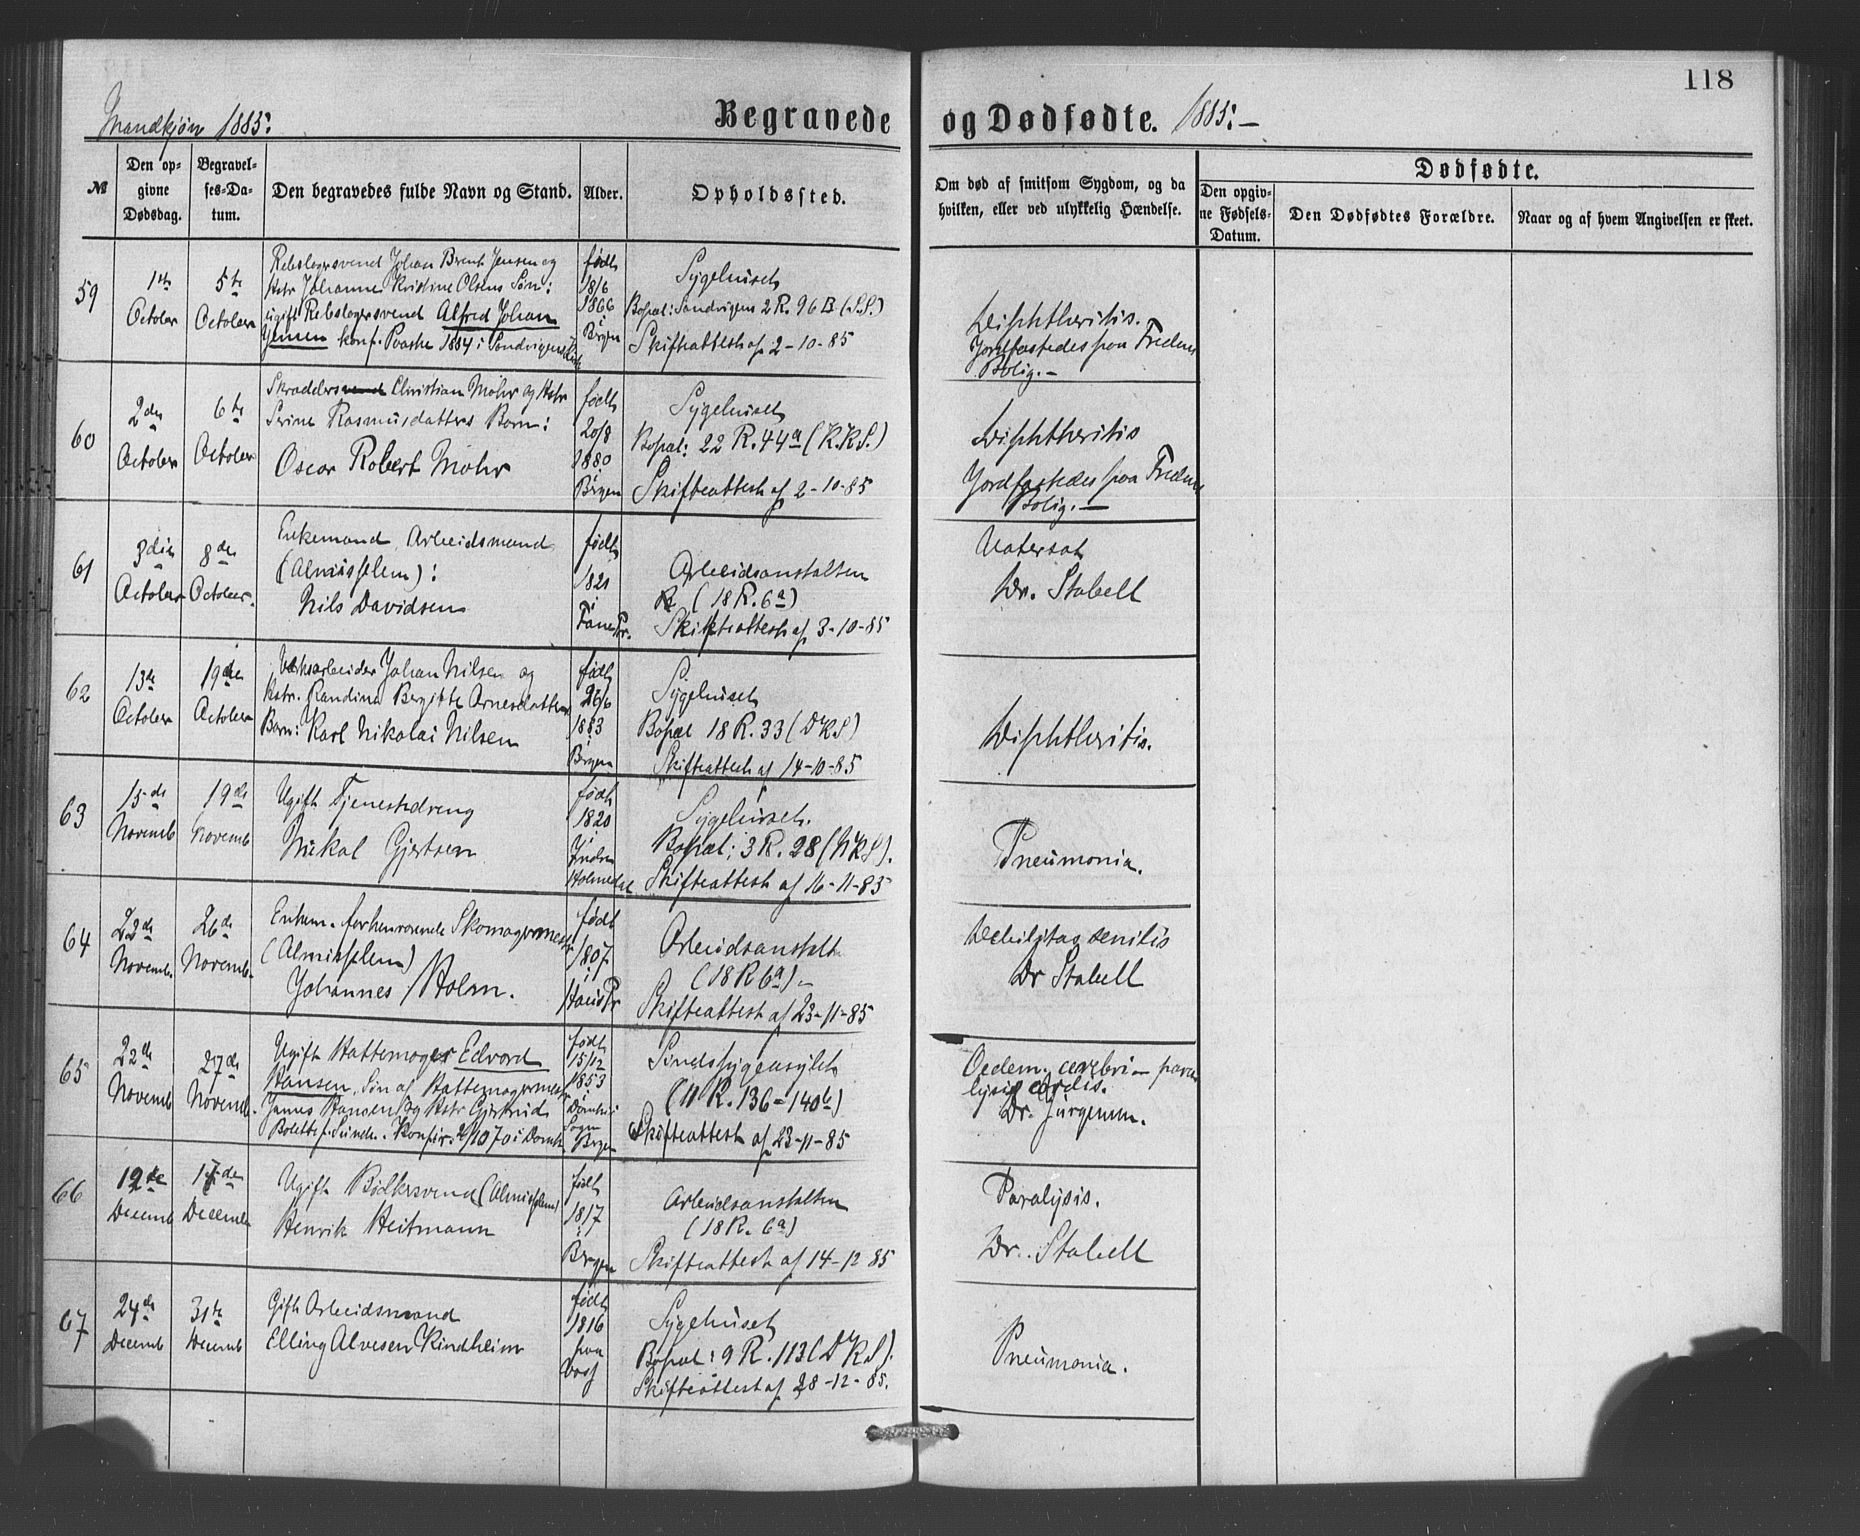 118
Mandkjøn 1885. Begravede og Dødfødte. 1885. —
№
Den opgivne Dødsdag.
Begravelses-Datum.
Den begravedes fulde Navn og Stand.
Alder.
Opholdssted.
Om død af smitsom Sygdom, og da hvilken, eller ved ulykkelig Hændelse.
Dødfødte.
Den opgivne Fødsels-Datum.
Den Dødfødtes Forældre.
Naar og af hvem Angivelsen er skeet.
59
1ste October
5te October
Rebslagersvend Johan Brent Jensen og
Hstr Johanne Kristine Olsens Søn:
ugift Rebslagersvend Alfred Johan
Jensen konf. Paaske 1884 i Sandvigens
født 18/6 1866 i Bergen
Sygehuset
Bopæl: Sandvigens 2 R. 96 B (S.S.)
Skifteattest af 2-10-85
Diphtheritis.
Jordfæstedes paa Fredens
Bolig. —
60
2den October
6te October
Skræddersvend Christian Mohr og Hstr
Serine Rasmusdatters Barn:
Oscar Robert Mohr
født 20/8 1880 i Bergen
Sygehuset
Bopæl: 22 R. 44a (K.K.S.)
Skifteattest af 2-10-85
Diphtheritis
Jordfæstedes paa Fredens
Bolig. —
61
3die October
8de October.
Enkemand, Arbeidsmand
(Almisselem):
Nils Davidsen
født 1821 i Fane Pr.
Arbeidsanstalten
(18 R. 6a)
Skifteattest af 3-10-85
Vatersot
Dr. Stabell
62
13de October
19de October
Værksarbeider Johan Nilsen og
Hstr. Randina Bergitte Arnesdatters
Barn: Karl Nikolai Nilsen
født 26/6 1883 i Bergen
Sygehuset
Bopæl 18 R. 33 (DKS)
Skifteattest af 14-10-85
Diphtheritis.
63
15de Novemb
19de Novemb
Ugift Tjenestedreng
Mikal Gjertsen
født 1820 i Indre Holmedal
Sygehuset.
Bopæl: 3 R. 28 (NKS).
Skifteattest af 16-11-85
Pneumonia.
64
Novemb.
26de Novemb.
Enkem. forhenværende Skomagermester
(Almisselem)
Johannes Holm.
født 1807 i Haus Pr
Arbeidsanstalt
(18 R 6a) —
Skifteattest af 23-11-85
Debilitas senilis
Dr Stabell
65
22de Novemb
27de Novemb.
Ugift Hattemager Edvard
Hansen, Søn af Hattemagermester
James Hansen og Hstr Gjertrud
Bolette f. Sunde. Konfir. 1870 i Domk.
født 15/12 1853 i Domk. Sogn Bergen
Sindssygeasylet
(11 R. 136 = 140b)
Skifteattest af 23-11-85
Oedem. cerebri — para-
lysis cordis.
Dr. Jürgensen.
66
12de Decemb
17de Decemb
Ugift Bødkersvend (Almisselem)
Henrik Heitmann
født 1817 i Bergen
Arbeidsanstalten
(18 R. 6a)
Skifteattest af 14-12 85
Paralysis.
Dr. Stabell
67
24de Decemb
31te Decemb
Gift Arbeidsmand
Elling Alvesen Kindheim
født 1816 paa Voss
Sygehuset
Bopæl: 9 R. 113 (DKS).
Skifteattest af 28-12-85.
Pneumonia.